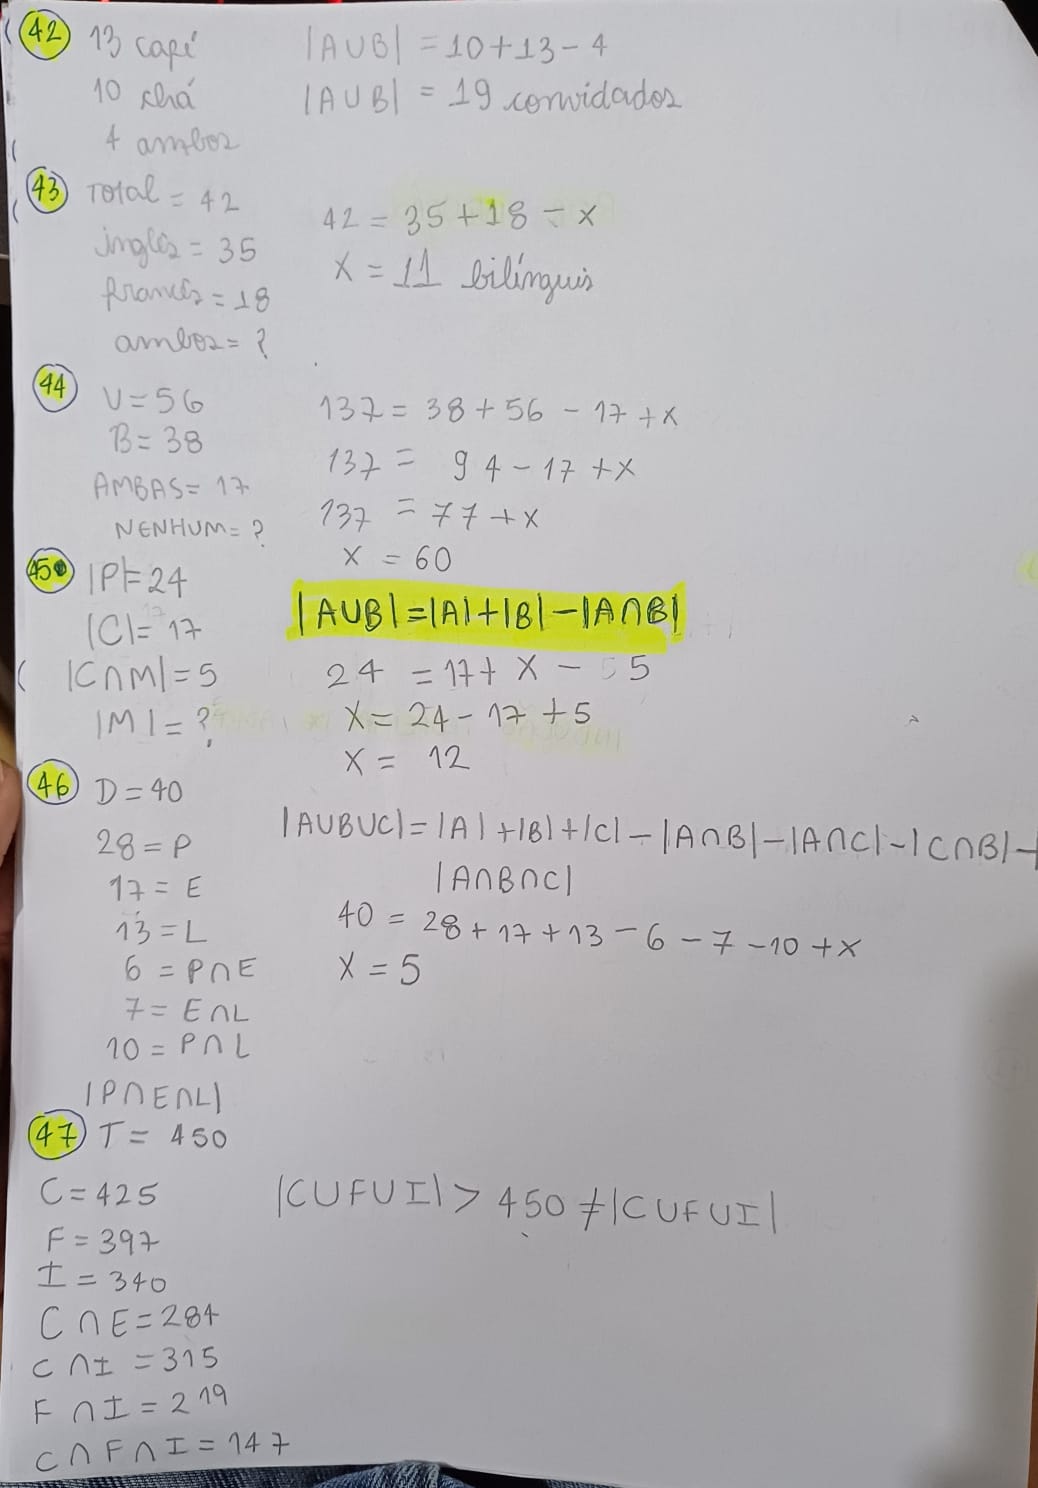 42 13 café
10 chá
4 ambos
|A∪B| = 10+13-4
|A∪B| = 19 convidados
43 Total = 42
inglês = 35
francês = 18
ambos = ?
42 = 35+18-x
x = 11 bilínguis
44 V=56
B=38
AMBAS=17
NENHUM=?
137 = 38+56-17+x
137 = 94-17+x
137 = 77+x
x = 60
45 |P|=24
|C|=17
|C∩M|=5
|M|=?
|A∪B|=|A|+|B|-|A∩B|
24 = 17+x-5
x=24-17+5
x= 12
46 D=40
28=P
17=E
13=L
6=P∩E
7=E∩L
10=P∩L
|P∩E∩L|
|A∪B∪C|=|A|+|B|+|C|-|A∩B|-|A∩C|-|C∩B|-
|A∩B∩C|
40 = 28+17+13-6-7-10+x
x=5
47 T= 450
C=425
F=397
I=340
C∩E=284
C∩I=315
F∩I=219
C∩F∩I=147
|C∪F∪I|> 450 ≠|C∪F∪I|